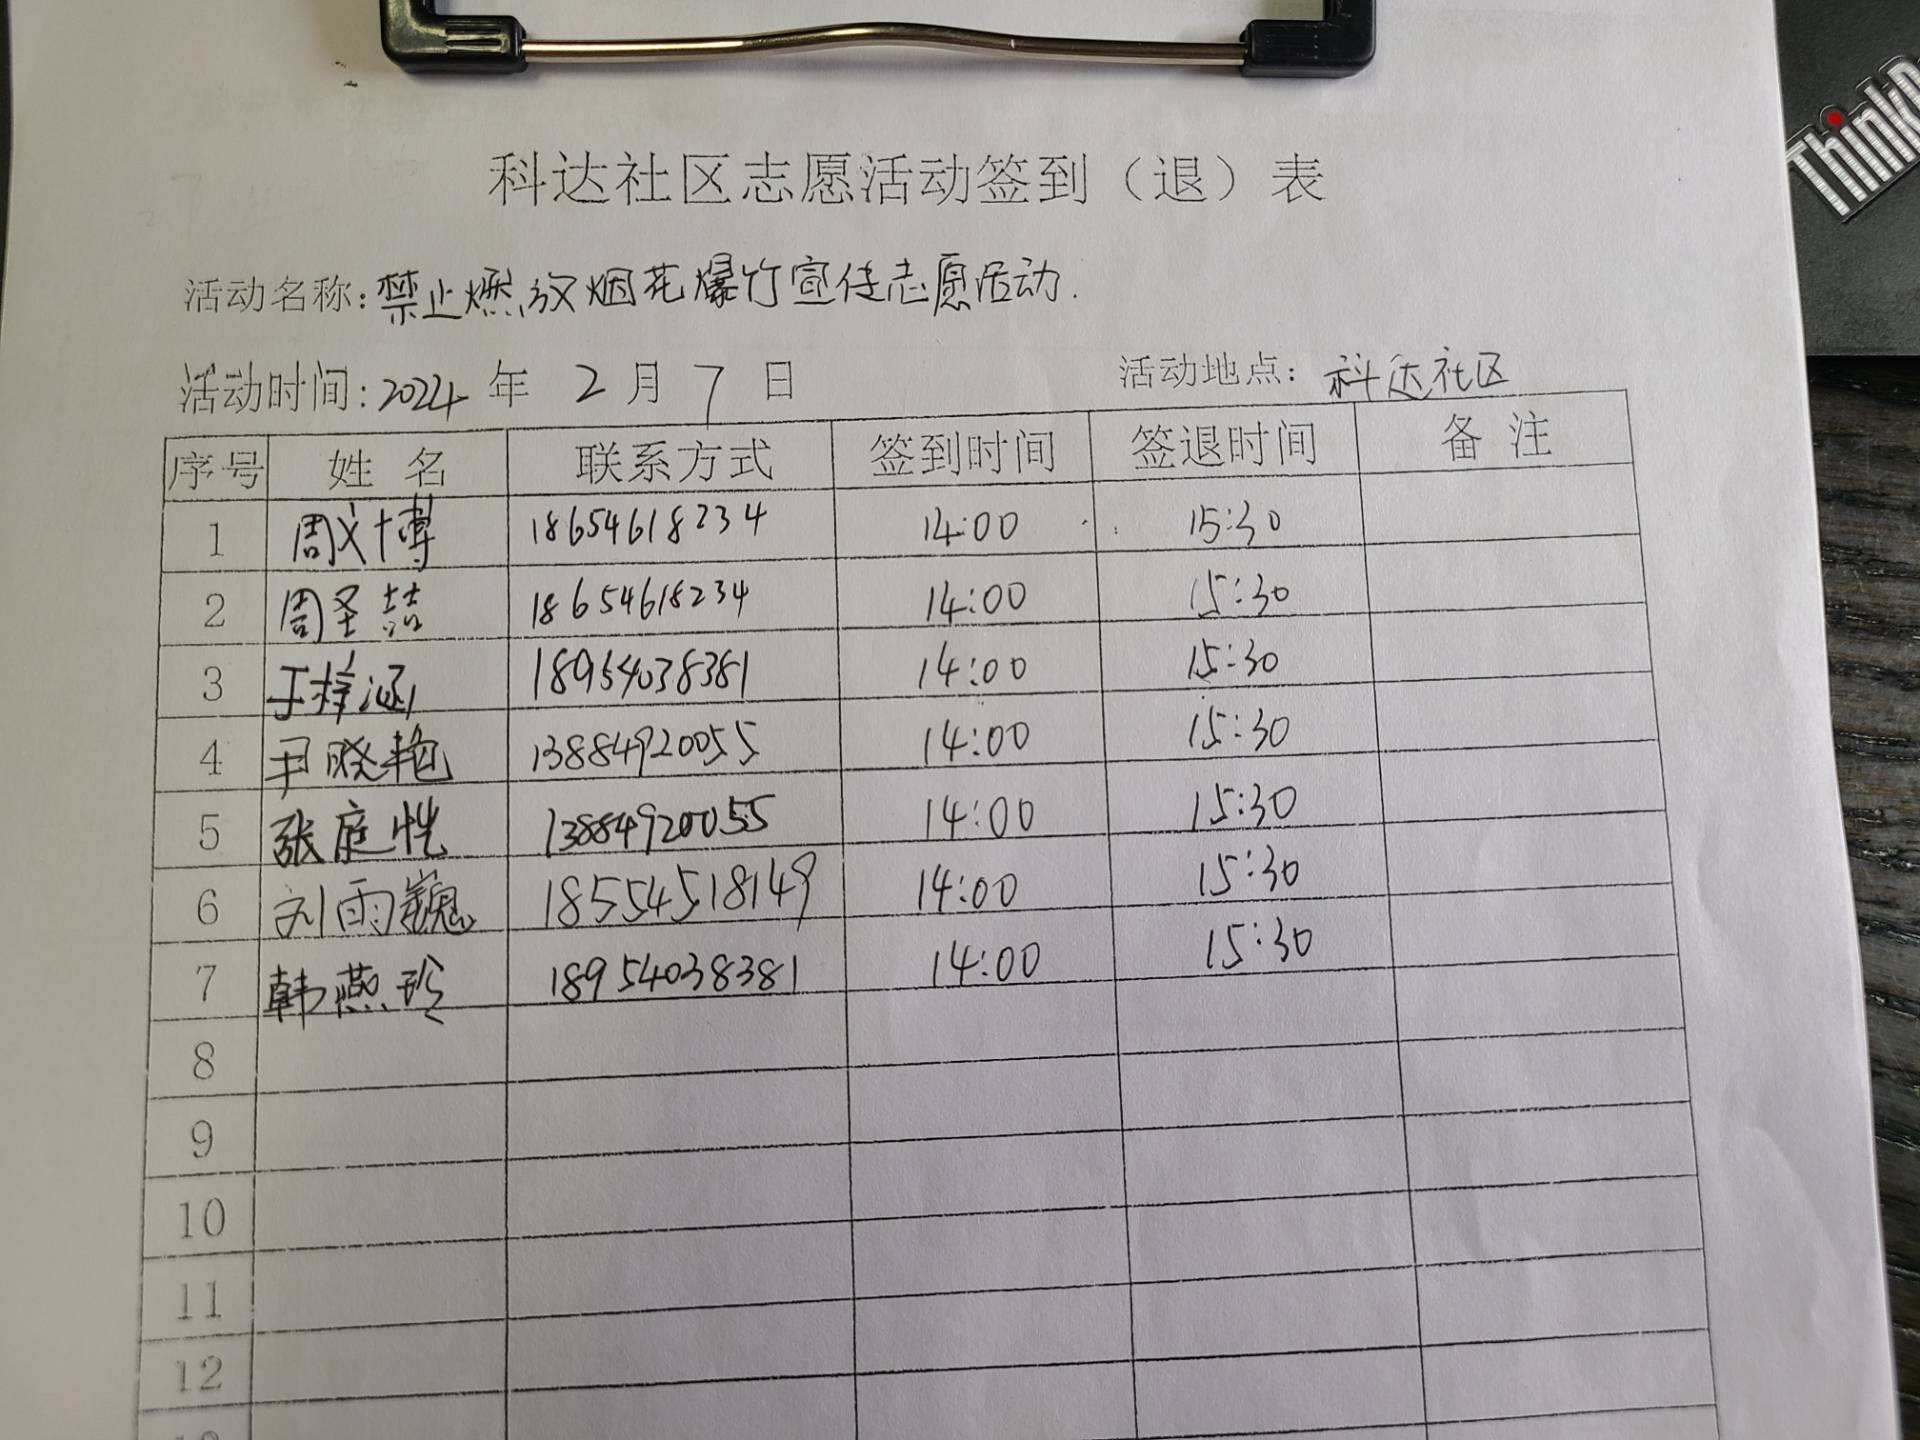 科达社区志愿活动签到（退）表
活动名称:禁止燃放烟花爆竹宣传志愿活动.
活动时间:2024年 2月 7日 活动地点: 科达社区
序号 姓名 联系方式 签到时间 签退时间 备注
1 周文博 18654618234 14:00 15:30
2 周圣喆 18654618234 14:00 15:30
3 于梓涵 18954038381 14:00 15:30
4 尹晓艳 13884920055 14:00 15:30
5 张庭恺 13884920055 14:00 15:30
6 刘雨巍 18554518149 14:00 15:30
7 韩燕玲 18954038381 14:00 15:30
8
9
10
11
12
Think